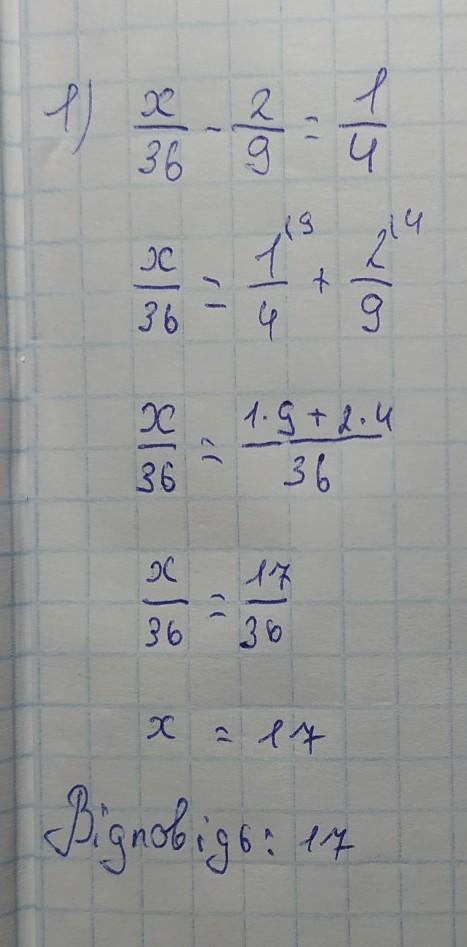 1) x/36 - 2/9 = 1/4
x/36 = 1⁽⁹/4 + 2⁽⁴/9
x/36 = 1·9 + 2·4/36
x/36 = 17/36
x = 17
Відповідь: 17